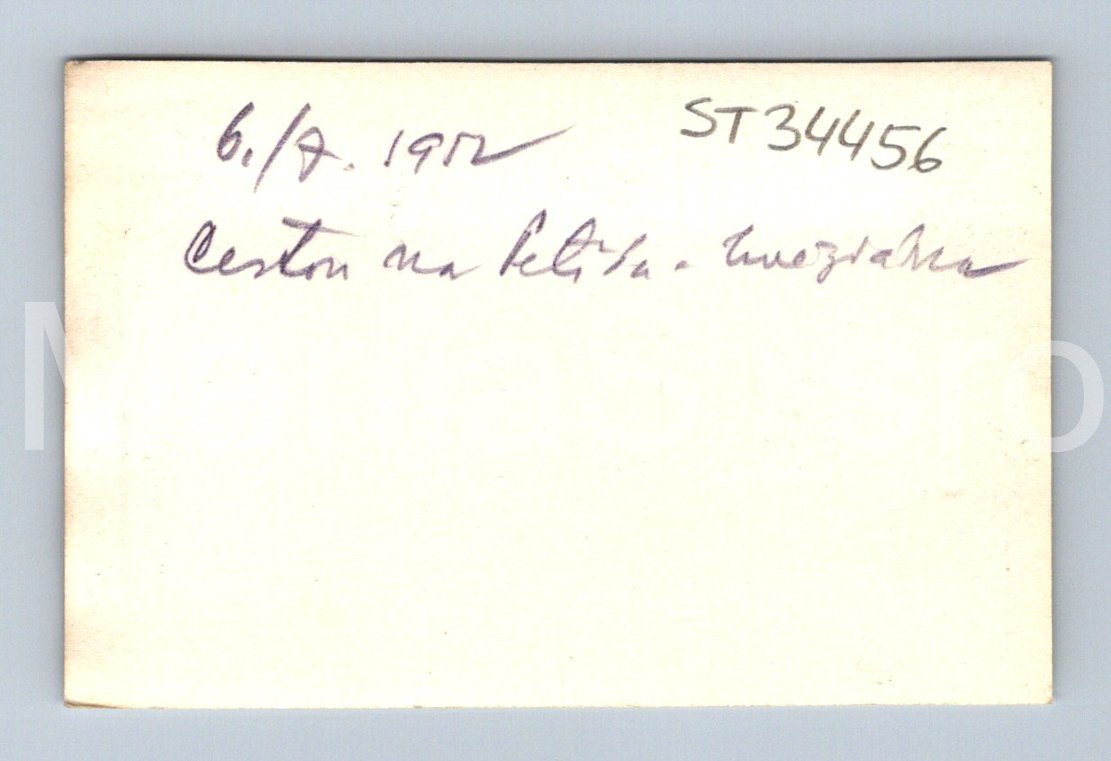 6./7. 1952 ST34456
Cestou na Petřín - hvězdárna